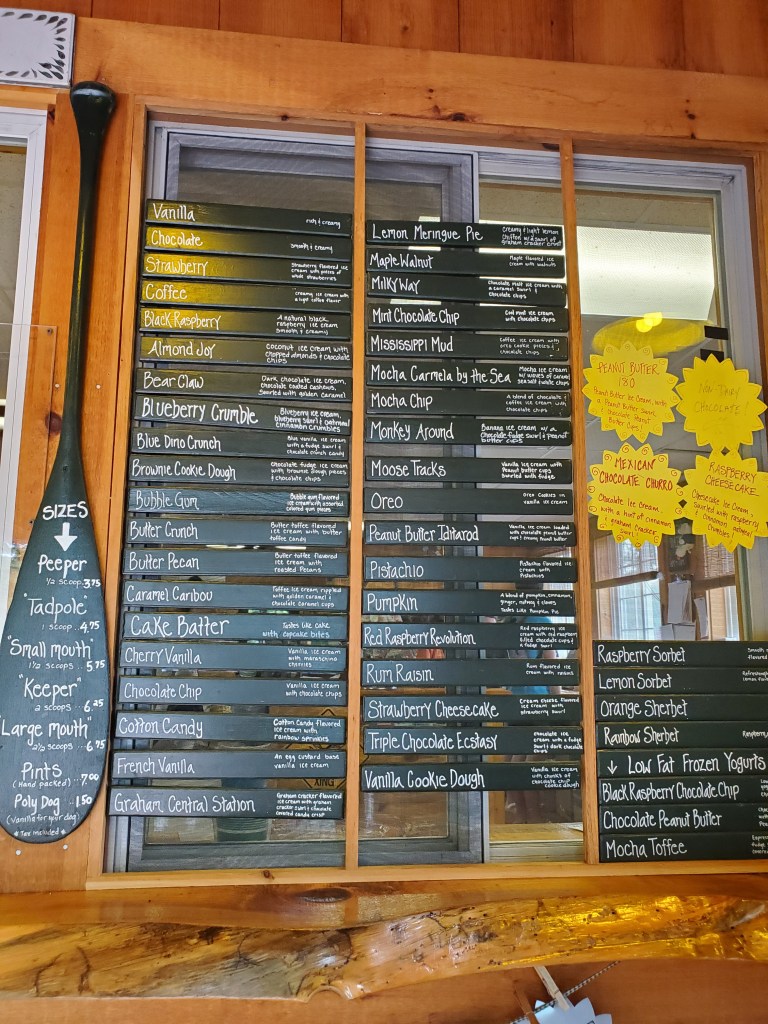 SIZES
Peeper
1/2 scoop..3.75
"Tadpole"
1 scoop..4.75
"Small mouth"
1 1/2 scoops..5.75
"Keeper"
2 scoops..6.25
"Large mouth"
2 1/2 scoops..6.75
Pints
(Hand packed)..7.00
Poly Dog..1.50
(Vanilla for your dog)
* Tax included *
Vanilla
rich & creamy
Chocolate
smooth & creamy
Strawberry
Strawberry flavored
ice cream with pieces of
whole strawberries
Coffee
creamy ice cream with
a light coffee flavor
Black Raspberry
A natural black
raspberry ice cream
smooth & creamy
Almond Joy
coconut ice cream with
chopped almonds & chocolate
chips
Bear Claw
Dark chocolate ice cream,
chocolate coated cashews,
swirled with golden caramel
Blueberry Crumble
Blueberry ice cream w/
blueberry swirl & oatmeal
cinnamon crumbles
Blue Dino Crunch
Blue vanilla ice cream
with a fudge swirl &
chocolate crunch candy
Brownie Cookie Dough
Chocolate fudge ice cream
with brownie dough pieces
& chocolate chips
Bubble Gum
Bubble gum flavored
ice cream with assorted
colored gum pieces
Butter Crunch
Butter toffee flavored
ice cream with butter
toffee candy
Butter Pecan
Butter toffee flavored
ice cream with
roasted Pecans
Caramel Caribou
Toffee ice cream rippled
with golden caramel &
chocolate caramel cups
Cake Batter
Tastes like cake
with cupcake bites
Cherry Vanilla
Vanilla ice cream
with maraschino
cherries
Chocolate Chip
Vanilla ice cream
with chocolate chips
Cotton Candy
Cotton Candy flavored
ice cream with
rainbow sprinkles
French Vanilla
An egg custard base
vanilla ice cream
Graham Central Station
Graham cracker flavored
ice cream with graham
cracker swirl & chocolate
coated candy crisp
Lemon Meringue Pie
Creamy & light lemon
chiffon w/ a swirl of
graham cracker crust
Maple Walnut
Maple flavored ice
cream with walnuts
Milky Way
Chocolate malt ice cream with
a caramel swirl &
chocolate chips
Mint Chocolate Chip
Cool mint ice cream
with chocolate chips
Mississippi Mud
Coffee ice cream with
oreo cookie pieces &
chocolate chips
Mocha Carmela by the Sea
Mocha ice cream
w/ waves of caramel
sea salt truffle chips
Mocha Chip
A blend of chocolate &
coffee ice cream with
chocolate chips
Monkey Around
Banana ice cream w/ a
chocolate fudge swirl & peanut
butter cups
Moose Tracks
Vanilla ice cream with
Peanut butter cups
swirled with fudge
Oreo
Oreo Cookies in
vanilla ice cream
Peanut Butter Iditarod
Vanilla ice cream loaded
with chocolate peanut butter
cups & creamy peanut butter
Pistachio
Pistachio flavored ice
cream with
Pistachios
Pumpkin
A blend of pumpkin, cinnamon,
ginger, nutmeg & cloves
Tastes Like Pumpkin Pie
Red Raspberry Revolution
Red raspberry ice
cream with red raspberry
filled chocolate cups &
a fudge swirl
Rum Raisin
Rum flavored ice
cream with
raisins
Strawberry Cheesecake
Cream cheese flavored
ice cream with
strawberry swirl
Triple Chocolate Ecstasy
chocolate ice
cream with a fudge
swirl & dark chocolate
chips
Vanilla Cookie Dough
Vanilla ice cream
with chunks of
chocolate chip
cookie dough
PEANUT BUTTER
180
Peanut Butter Ice Cream, w/
a Peanut Butter Swirl,
& chocolate Peanut
Butter Cups!
Non Dairy
CHOCOLATE
MEXICAN
CHOCOLATE CHURRO
Chocolate Ice Cream,
with a hint of cinnamon
& graham cracker
RASPBERRY
CHEESECAKE
Cheesecake Ice Cream,
Swirled with raspberry
& Cinnamon oatmeal
Crumbles
Raspberry Sorbet
Lemon Sorbet
Orange Sherbet
Rainbow Sherbet
↓ Low Fat Frozen Yogurts
Black Raspberry Chocolate Chip
Chocolate Peanut Butter
Mocha Toffee